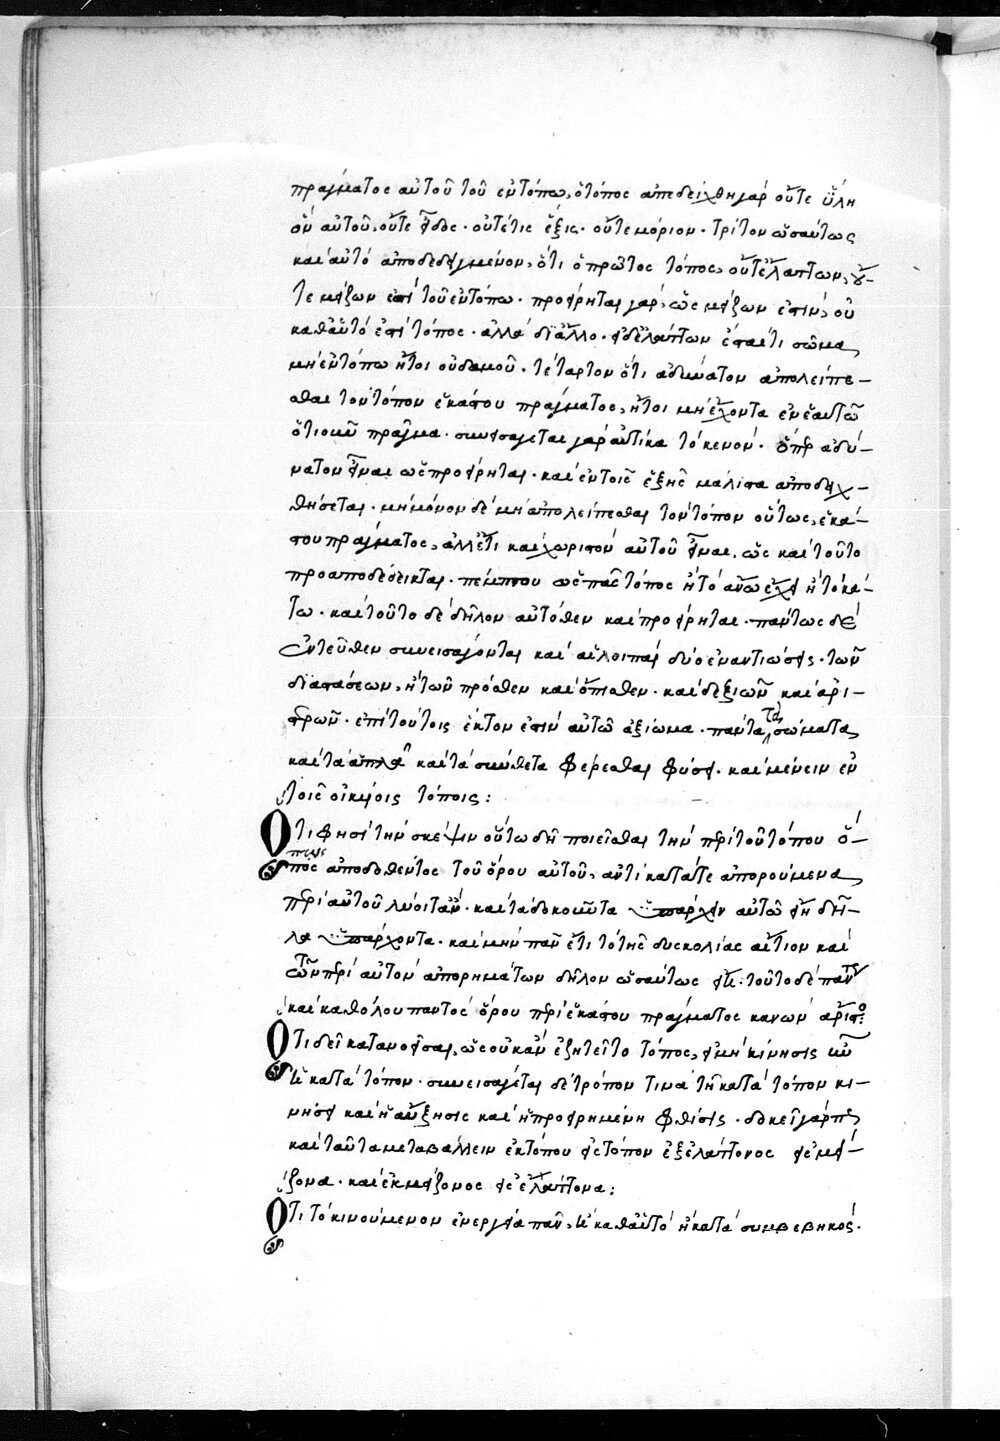 πράγματος αὐτοῦ τοῦ ἐν τόπω, ὁ τόπος ἀπεδείχθη γὰρ οὔτε ὕλη
ὂν αὐτοῦ, οὔτε εἶδος· οὔτέ τις ἕξις· οὔτε μόριον· τρίτον ὡσαύτως
καὶ αὐτὸ ἀποδεδειγμένον, ὅτι ὁ πρῶτος τόπος, οὔτ' ἐλάττων, οὔ-
τε μείζων ἐστὶ τοῦ ἐν τόπω· προείρηται γὰρ, ὡς μείζων ἐστὶν, οὐ
καθ' αὑτό ἐστι τόπος· ἀλλὰ δι' ἄλλο· εἰ δ' ἐλάττων ἔσται τι σῶμα
μὴ ἐν τόπω ἤτοι οὐδαμοῦ· τέταρτον ὅτι ἀδύνατον ἀπολείπε-
σθαι τὸν τόπον ἑκάστου πράγματος, ἤτοι μὴ ἔχοντα ἐν ἑαυτῶ
ὁτιοῦν πρᾶγμα· συνεισάγεται γὰρ αὐτίκα τὸ κενόν· ὅπερ ἀδύ-
νατον εἶναι ὡς προείρηται· καὶ ἐν τοῖς ἑξῆς μάλιστα ἀποδειχ-
θήσεται· μὴ μόνον δὲ μὴ ἀπολείπεσθαι τὸν τόπον οὕτως, ἑκά-
στου πράγματος, ἀλλ' ἔτι καὶ χωριστὸν αὐτοῦ εἶναι, ὡς καὶ τοῦτο
προαποδέδεικται· πέμπτον ὡς πᾶς τόπος ἢ τὸ ἄνω ἔχει ἢ τὸ κά-
τω· καὶ τοῦτο δὲ δῆλον αὐτόθεν καὶ προείρηται· πάντως δὲ
ἐντεῦθεν συνεισάγονται καὶ αἱ λοιπαὶ δύο ἐναντιώσεις· τῶν
διαστάσεων, ἢ τῶν πρόσθεν καὶ ὄπισθεν· καὶ δεξιῶν καὶ ἀρι-
στερῶν· ἐπὶ τούτοις ἕκτον ἐστὶν αὐτῶ ἀξίωμα· πάντα τὰ σώματα
καὶ τὰ ἁπλᾶ καὶ τὰ σύνθετα φέρεσθαι φύσει· καὶ μένειν ἐν
τοῖς οἰκείοις τόποις:
Ὅτι φησὶ τὴν σκέψιν οὕτω δεῖ ποιεῖσθαι τὴν περὶ τοῦ τόπου ὅ-
πως ἀποδοθέντος τοῦ ὅρου αὐτοῦ, ἀντικα τά τε ἀπορούμενα
περὶ αὐτοῦ λύοιτ' ἄν· καὶ τὰ δοκοῦντα ὑπάρχειν αὐτῶ ἔτι δῆ-
λα ὑπάρχοντα· καὶ μὴν πᾶν ἔτι τὸ τῆς δυσκολίας αἴτιον καὶ
τῶν περὶ αὐτὸν ἀπορημάτων δῆλον ὡσαύτως εἴη· τοῦτο δὲ πάντων
καὶ καθόλου παντὸς ὅρου περὶ ἑκάστου πράγματος κανὼν ἄριστος:
Ὅτι δεῖ κατανοῆσαι, ὡς οὐκ ἂν ἐζητεῖτο τόπος, εἰ μὴ κίνησις ἦν
ἡ κατὰ τόπον· συνεισάγεται δὲ τρόπον τινὰ τῆ κατὰ τόπον κι-
νήσει καὶ ἡ αὔξησις καὶ ἡ προειρημένη φθίσις· δοκεῖ γάρ πως
καὶ ταῦτα μεταβάλλειν ἐκ τόπου εἰς τόπον ἐξ ἐλάττονος εἰς μεί-
ζονα· καὶ ἐκ μείζονος εἰς ἐλάττονα:
Ὅτι τὸ κινούμενον ἐνεργεία πᾶν, ἢ καθ' αὑτὸ ἢ κατὰ συμβεβηκός·